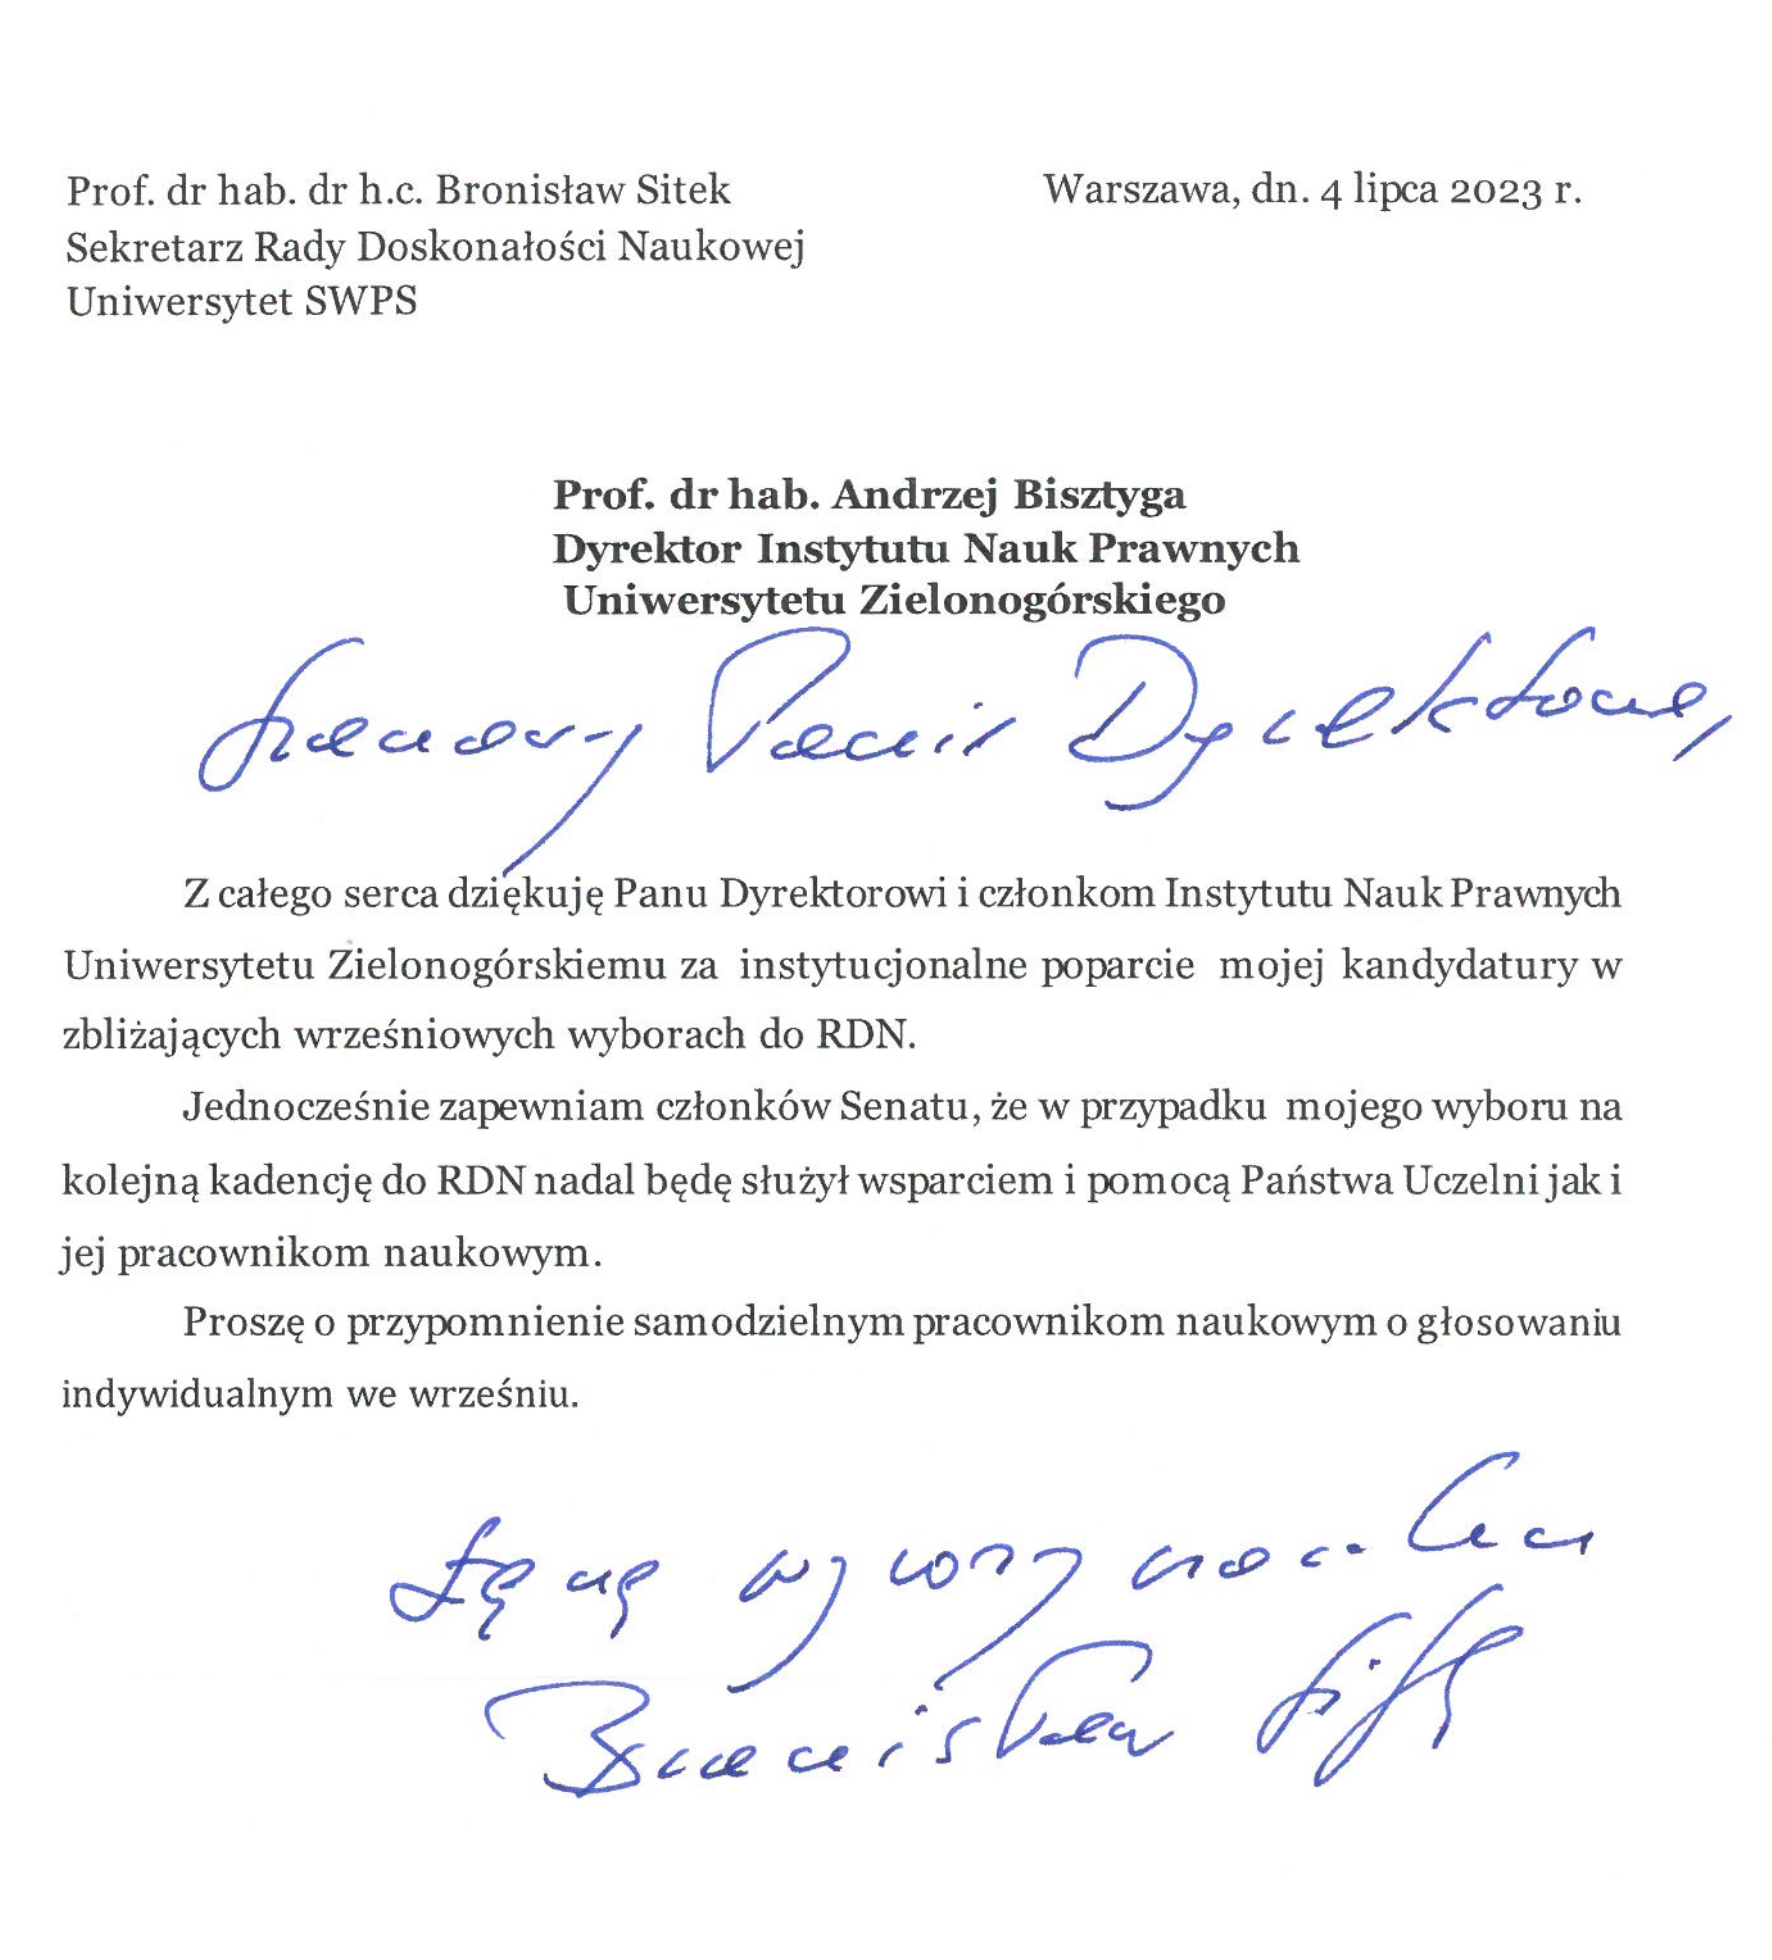 Prof. dr hab. dr h.c. Bronisław Sitek
Warszawa, dn. 4 lipca 2023 r.
Sekretarz Rady Doskonałości Naukowej
Uniwersytet SWPS
Prof. dr hab. Andrzej Bisztyga
Dyrektor Instytutu Nauk Prawnych
Uniwersytetu Zielonogórskiego
Szanowny Panie Dyrektorze,
Z całego serca dziękuję Panu Dyrektorowi i członkom Instytutu Nauk Prawnych
Uniwersytetu Zielonogórskiemu za instytucjonalne poparcie mojej kandydatury w
zbliżających wrześniowych wyborach do RDN.
Jednocześnie zapewniam członków Senatu, że w przypadku mojego wyboru na
kolejną kadencję do RDN nadal będę służył wsparciem i pomocą Państwa Uczelni jak i
jej pracownikom naukowym.
Proszę o przypomnienie samodzielnym pracownikom naukowym o głosowaniu
indywidualnym we wrześniu.
Łączę wyrazy szacunku
Bronisław Sitek